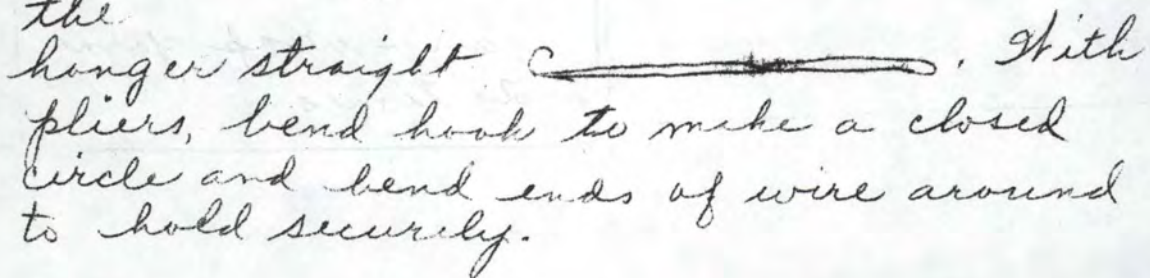 the
hanger straight . With
pliers, bend hook to make a closed
circle and bend ends of wire around
to hold securely.